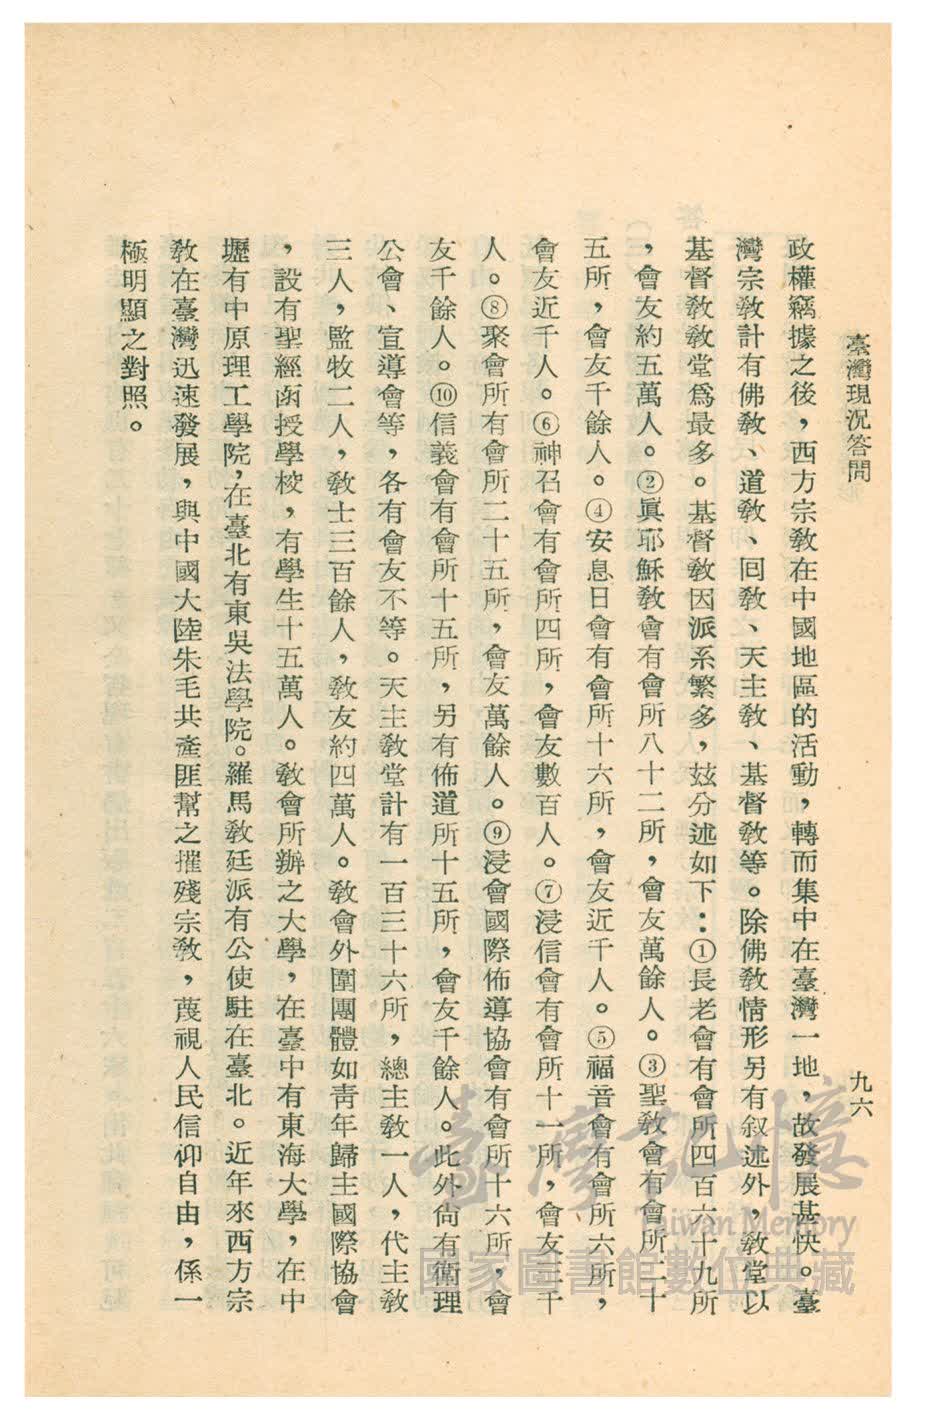 臺灣現況答問
九六
政權竊據之後，西方宗教在中國地區的活動，轉而集中在臺灣一地，故發展甚快。臺
灣宗教計有佛教、道教、回教、天主教、基督教等。除佛教情形另有叙述外，教堂以
基督教教堂爲最多。基督教因派系繁多，玆分述如下：①長老會有會所四百六十九所
，會友約五萬人。②眞耶穌教會有會所八十二所，會友萬餘人。③聖教會有會所二十
五所，會友千餘人。④安息日會有會所十六所，會友近千人。⑤福音會有會所六所，
會友近千人。⑥神召會有會所四所，會友數百人。⑦浸信會有會所十一所，會友三千
人。⑧聚會所有會所二十五所，會友萬餘人。⑨浸會國際佈導協會有會所十六所，會
友千餘人。⑩信義會有會所十五所，另有佈道所十五所，會友千餘人。此外尙有衛理
公會、宣導會等，各有會友不等。天主教堂計有一百三十六所，總主教一人，代主教
三人，監牧二人，教士三百餘人，教友約四萬人。教會外圍團體如靑年歸主國際協會
，設有聖經函授學校，有學生十五萬人。教會所辦之大學，在臺中有東海大學，在中
壢有中原理工學院，在臺北有東吳法學院。羅馬教廷派有公使駐在臺北。近年來西方宗
教在臺灣迅速發展，與中國大陸朱毛共產匪幫之摧殘宗教，蔑視人民信仰自由，係一
極明顯之對照。
臺灣記憶
Taiwan Memory
國家圖書館數位典藏